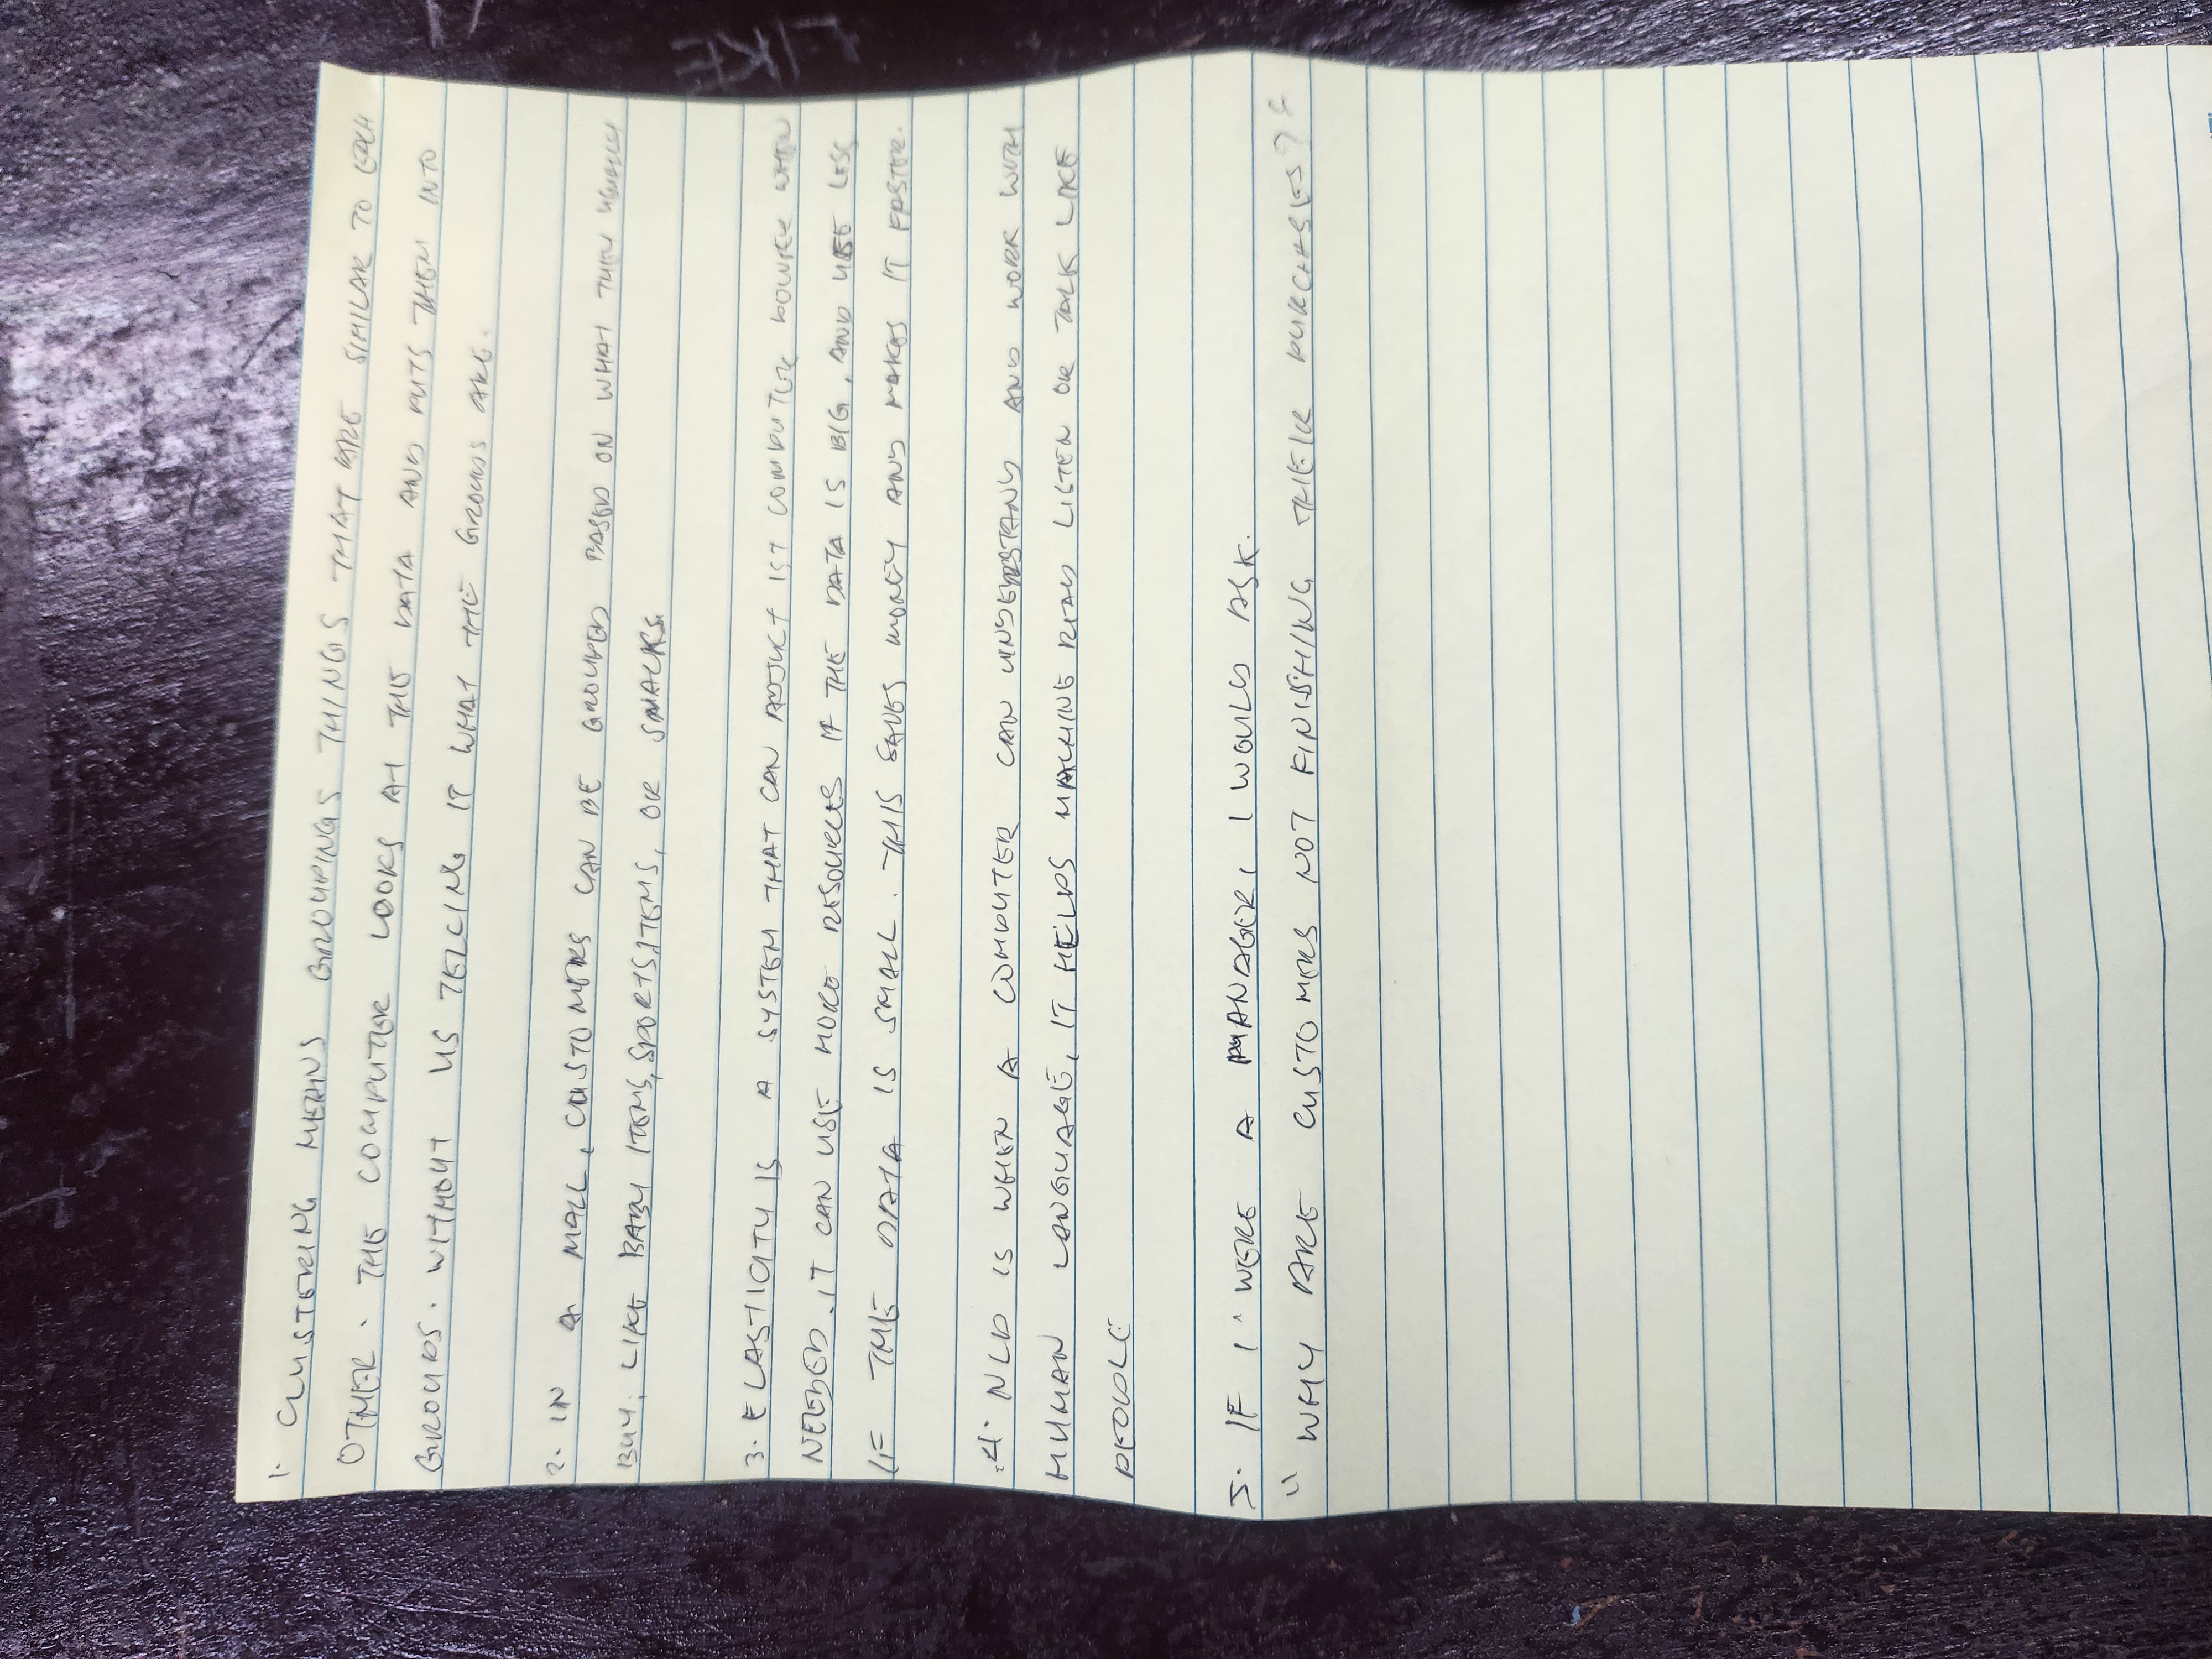 1. CLUSTERING MEANS GROUPINGS THINGS THAT ARE SIMILAR TO EACH
OTHER. THE COMPUTER LOOKS AT THE DATA AND PUTS THEM INTO
GROUPS. WITHOUT US TELLING IT WHAT THE GROUPS ARE.
2. IN A MALL, CUSTOMERS CAN BE GROUPED BASED ON WHAT THEY USUALLY
BUY, LIKE BABY ITEMS, SPORTS ITEMS, OR SNACKS.
3. ELASTICITY IS A SYSTEM THAT CAN ADJUCT IST COMPUTER POWER WHEN
NEEDED. IT CAN USE MORE RESOURCES IF THE DATA IS BIG, AND USE LESS
IF THE DATA IS SMALL. THIS SAVES MONEY AND MAKES IT FASTER.
4. NLP IS WHEN A COMPUTER CAN UNDERSTAND AND WORK WITH
HUMAN LANGUAGE, IT HELPS MACHINE READ LISTEN OR TALK LIKE
PEOPLE
5. IF I WERE A MANAGER, I WOULD ASK.
"WHY ARE CUSTOMERS NOT FINISHING THEIR PURCHASES?"